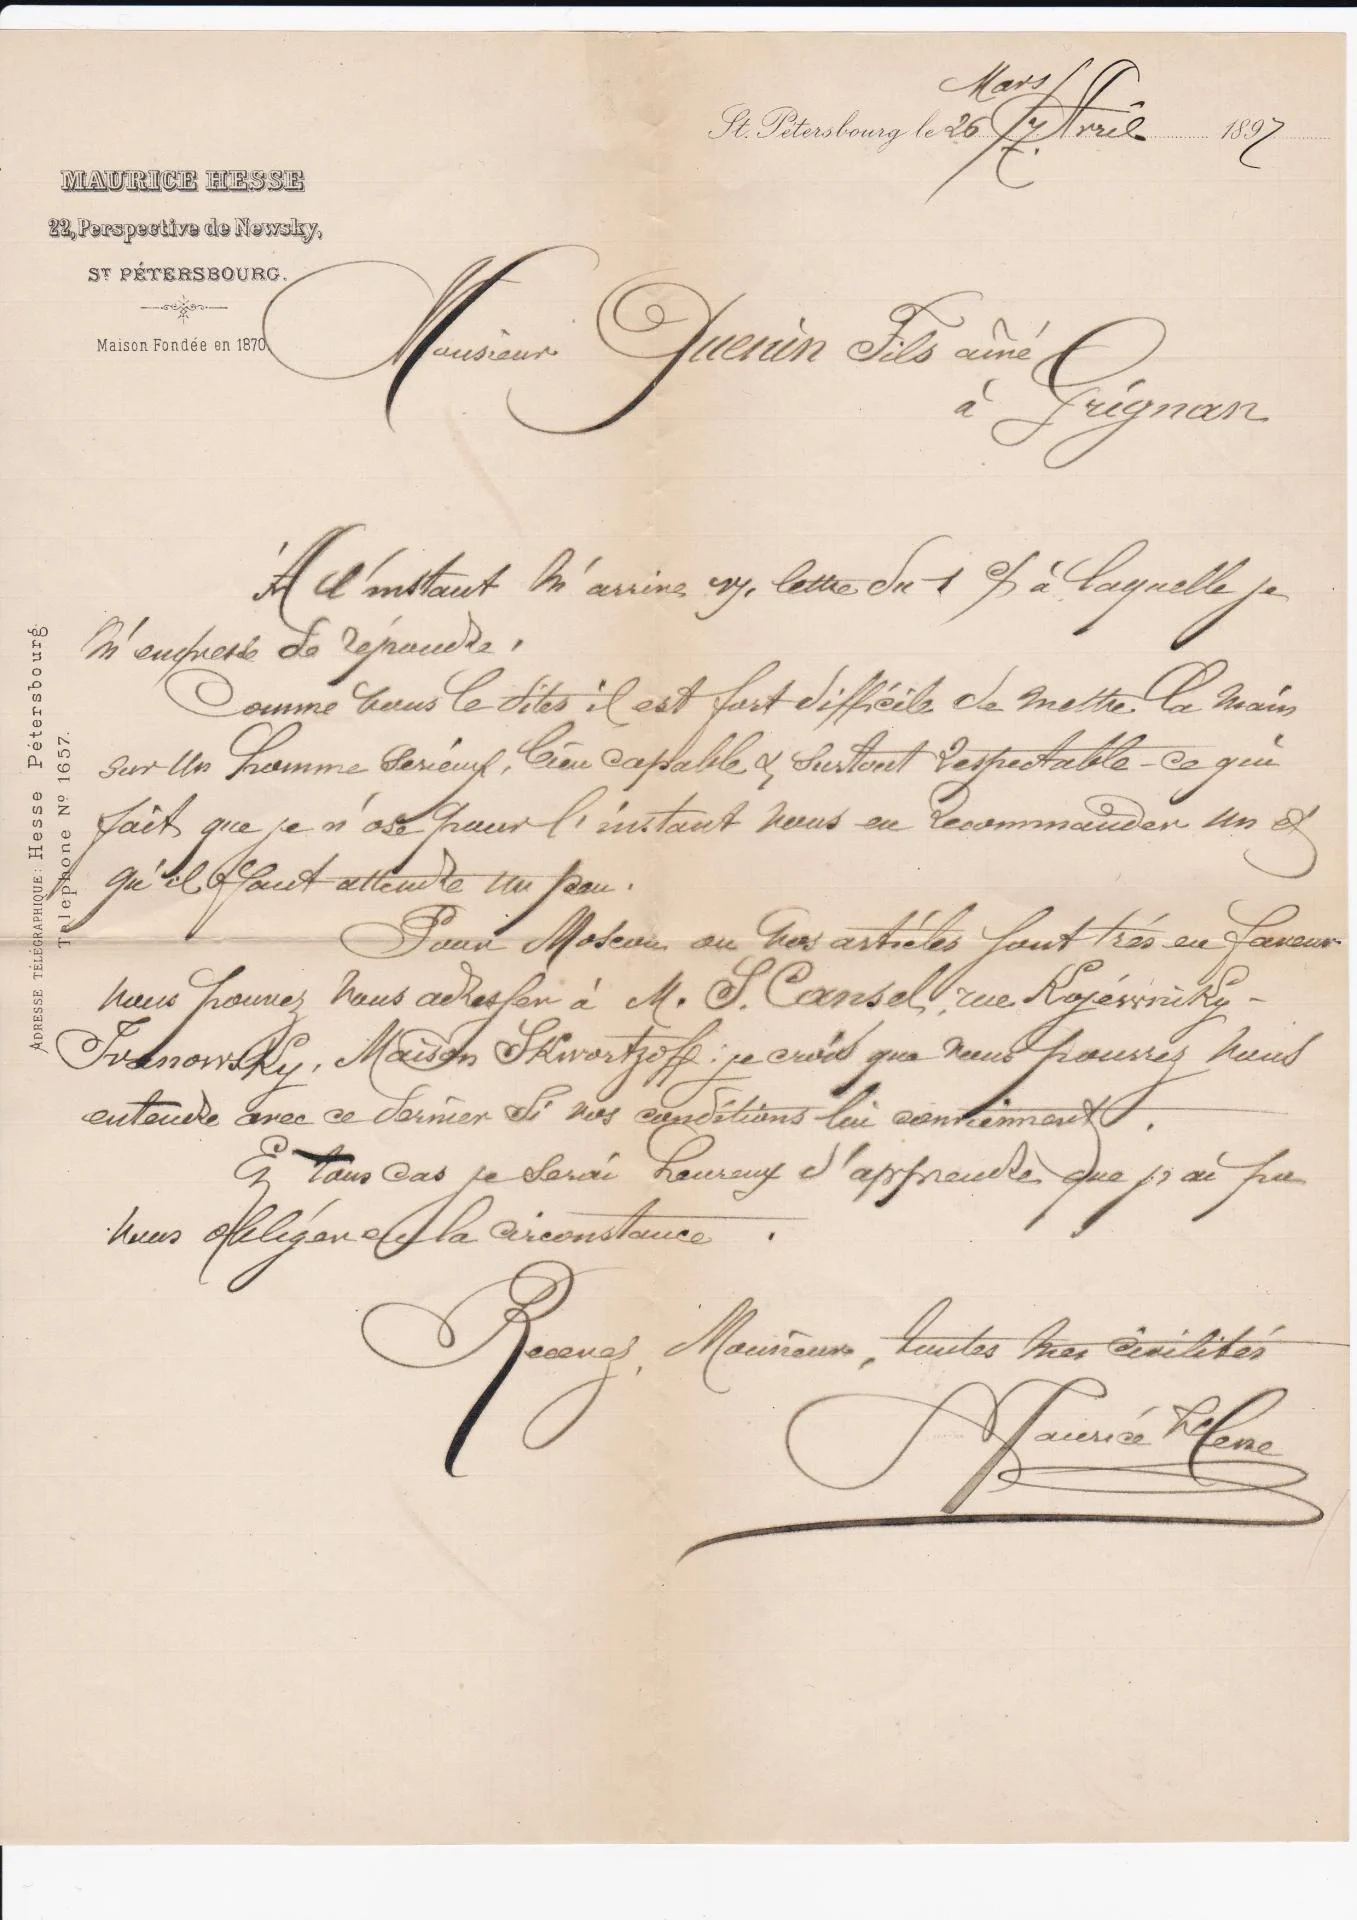 St. Pétersbourg le 26 Mars / 7 Avril 1897
MAURICE HESSE
22, Perspective de Newsky,
ST PÉTERSBOURG.
Maison Fondée en 1870.
Monsieur Quenin Fils aîné
à Grignan
ADRESSE TÉLÉGRAPHIQUE: Hesse Pétersbourg
Telephone No 1657.
À l'instant m'arrive v/. lettre du 1 à laquelle je
m'empresse de répondre.
Comme vous le dites il est fort difficile de mettre la main
sur un homme sérieux, bien capable & surtout respectable – ce qui
fait que je n'ose pour l'instant vous en recommander un &
qu'il faut attendre un peu.
Pour Moscou ou vos articles sont très en faveur
vous pouvez vous adresser à M. S. Cansel, rue Kojéwniky –
Ivanowsky, Maison Skwortzoff: je crois que vous pourrez vous
entendre avec ce dernier si vos conditions lui conviennent.
En tous cas je serai heureux d'apprendre que j'ai pu
vous obliger en la circonstance.
Recevez, Monsieur, toutes mes civilités
Maurice Hesse